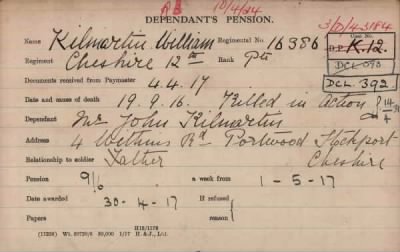 AB 10/4/34
DEPENDANT'S PENSION.
3/D/4-3184
Name Kilmartin William Regimental No. 16386
Case No.
D.P. K.12.
Regiment Cheshire 12th Rank Pte
DCL 093
Documents received from Paymaster 4.4.17
DCL. 392.
Date and cause of death 19.9.16. Killed in Action
Dependant Mr John Kilmartin
Address 4 Withens Rd Portwood Stockport
Cheshire
Relationship to soldier Father
Pension 9/6 a week from 1-5-17
Date awarded 30-4-17 If refused }
Papers reason }
H12/1179
(11238) Wt. 59720/6 50,000 1/17 H. & J., Ld.